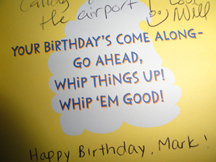 Calling
the airport
Love
Will
YOUR BIRTHDAY'S COME ALONG-
GO AHEAD,
WHIP THINGS UP!
WHIP 'EM GOOD!
Happy Birthday, Mark!